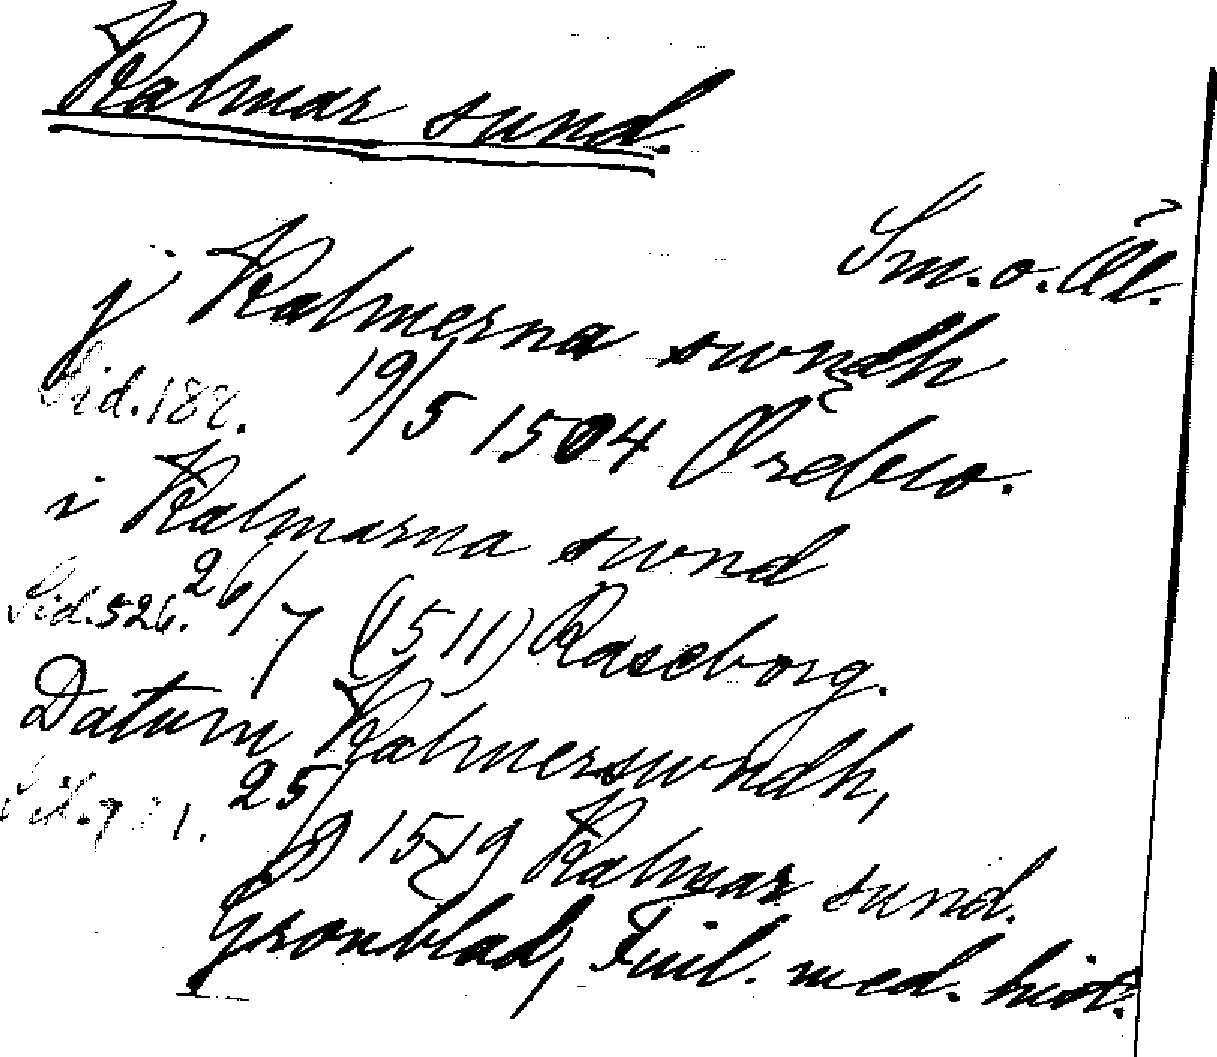 Kalmar sund.
Sm. o. Öl.
j Kalmerna swndh
19/5 1504 Örebro.
i Kalmarna swnd
Sid. 526. 26/7 (1511) Raseborg.
Datum Kalmerswndh,
25/9 1519 Kalmar sund.
Grönblad, Finl. med. hist.